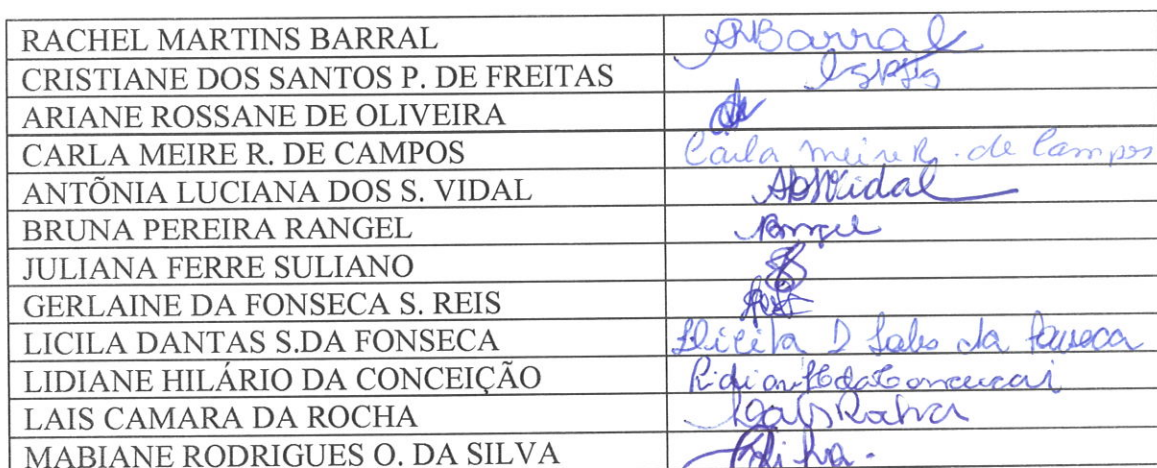 RACHEL MARTINS BARRAL Barral
CRISTIANE DOS SANTOS P. DE FREITAS
ARIANE ROSSANE DE OLIVEIRA
CARLA MEIRE R. DE CAMPOS Carla Meire R. de Campos
ANTÕNIA LUCIANA DOS S. VIDAL Vidal
BRUNA PEREIRA RANGEL
JULIANA FERRE SULIANO
GERLAINE DA FONSECA S. REIS
LICILA DANTAS S.DA FONSECA D Sales da Fonseca
LIDIANE HILÁRIO DA CONCEIÇÃO
LAIS CAMARA DA ROCHA Rocha
MABIANE RODRIGUES O. DA SILVA